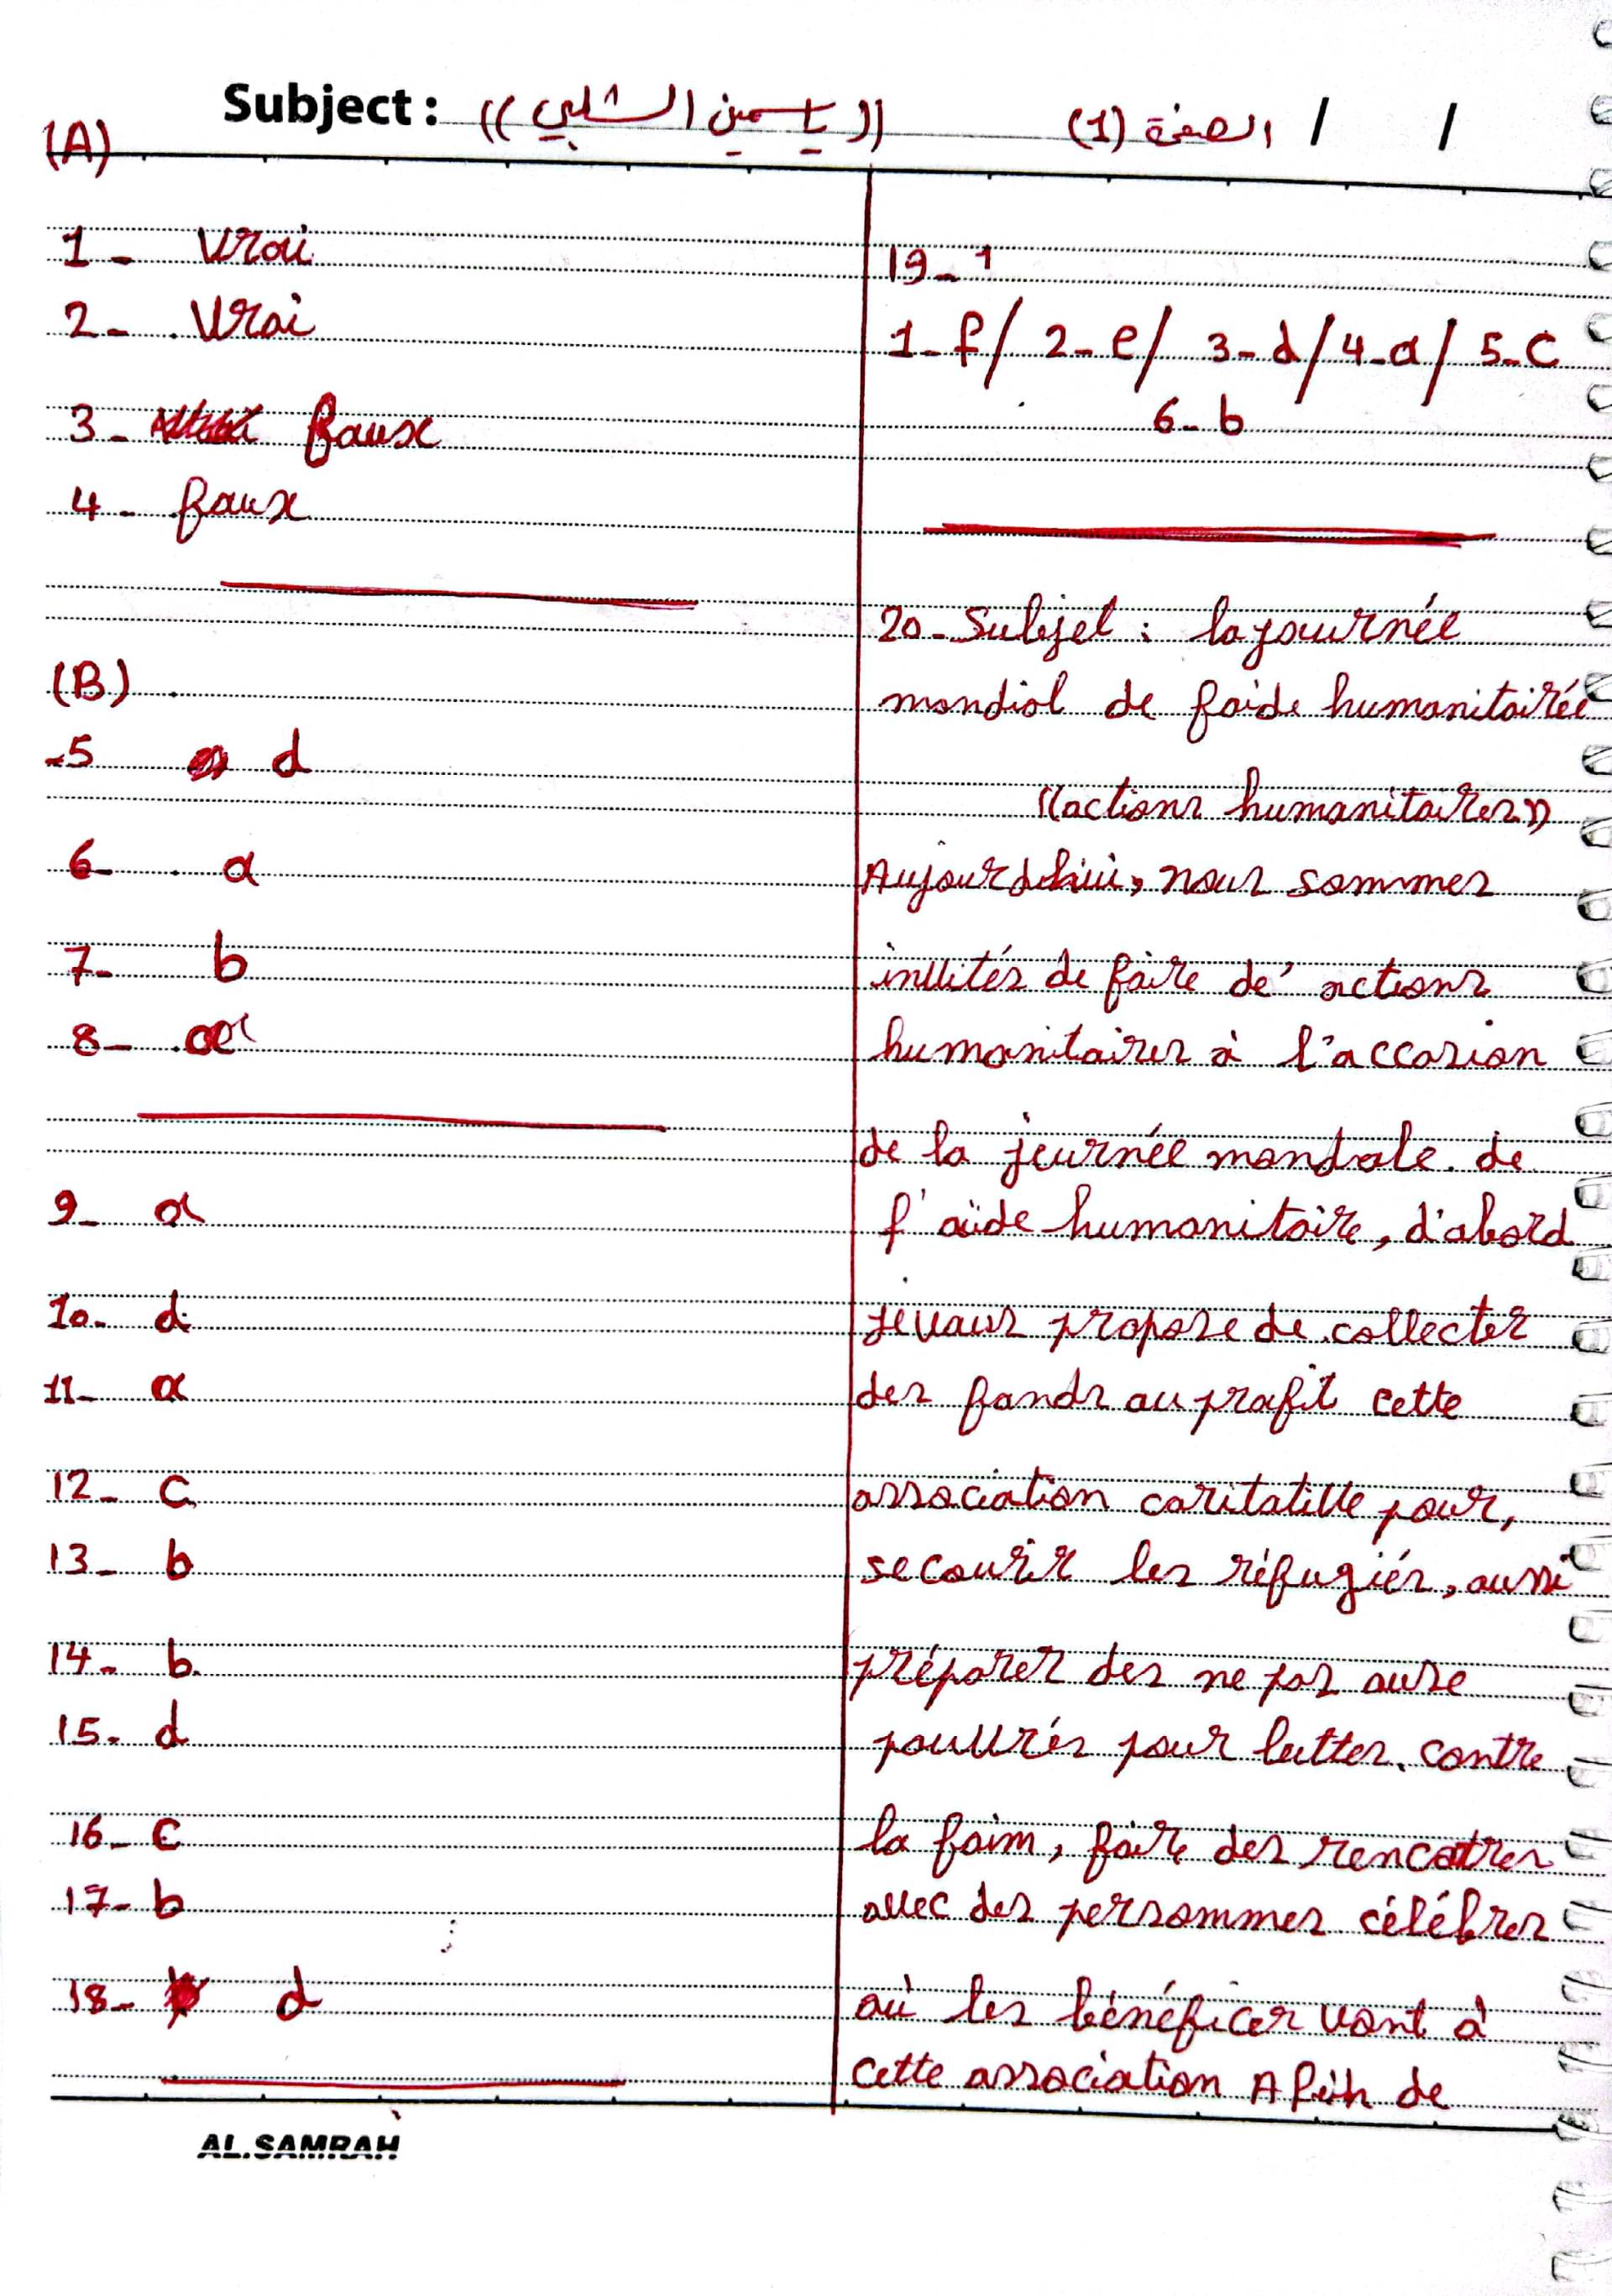 Subject: ((ياسمين الشلبي))
الصفحة (1) / /
(A)
1- Vrai
2- Vrai
3- faux
4- faux
(B)
-5 d
6- a
7- b
8-
9- a
10- d
11- a
12- c
13- b
14- b
15- d
16- c
17- b
18- d
AL.SAMRAH
19- 1
1-f/ 2-e/ 3-d/4-a/ 5-c
6-b
20- Subjet : la journée
mondial de faide humanitairée
((actions humanitaires))
Aujourdhui, nous sommes
invités de faire de' actions
humanitaires à l'accasion
de la journée mondale de
l'aide humanitaire, d'abord
je vous propose de collecter
des fonds au profit cette
association caritative pour,
secourir les réfugiés, aussi
préparer des ne pas aure
pouvrés pour lutter contre
la faim, faire des rencotres
avec des personnes célébres
où les bénéficer vont à
cette association Afin de